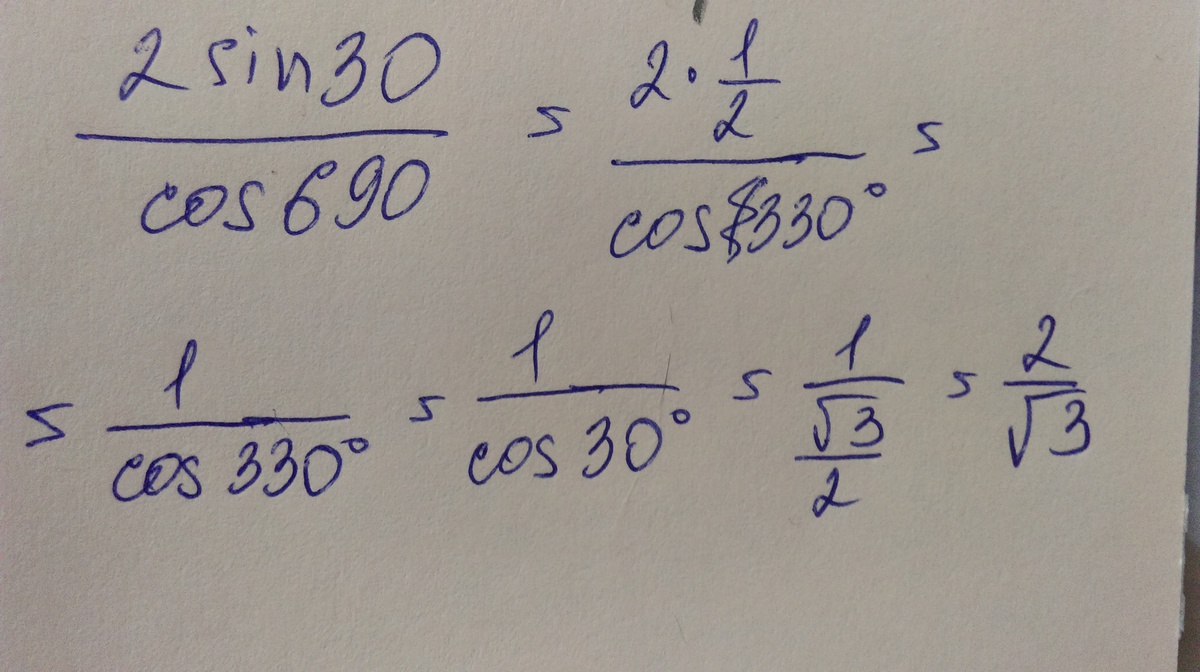 2 sin30 / cos690 = 2 · 1/2 / cos 330° =
= 1 / cos 330° = 1 / cos 30° = 1 / √3/2 = 2 / √3